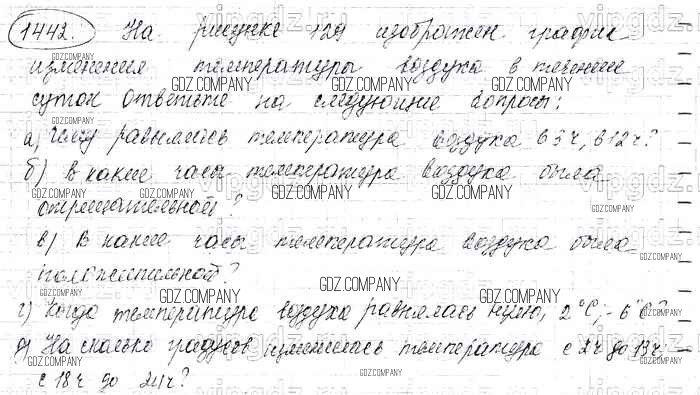 1442. На рисунке 129 изображен график
изменения температуры воздуха в течение
суток ответьте на следующие вопросы:
а) Чему равнялась температура воздуха в 3 ч, в 12 ч?
б) в какие часы температура воздуха была
отрицательной?
в) В какие часы температура воздуха была
положительной?
г) Когда температура воздуха равнялась нулю, 2°C; -6°C?
д) На сколько градусов изменилась температура с 2ч до 13ч
с 18 ч до 24ч?
GDZ.COMPANY
vipgdz.ru